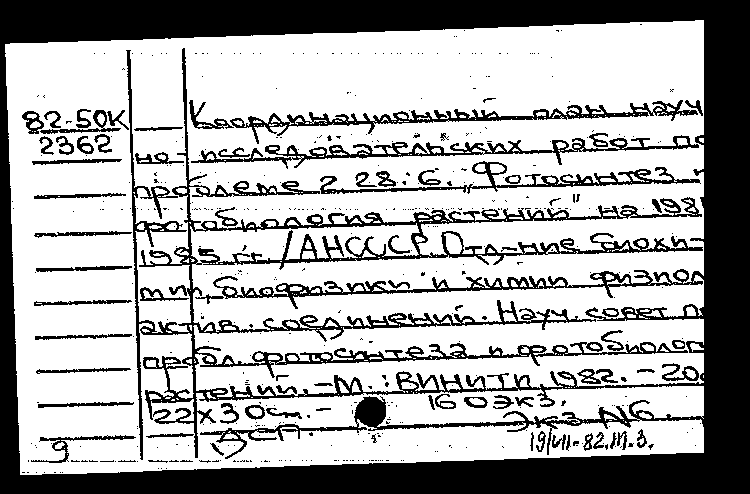 82-50К
2362
Координационный план науч
но-исследовательских работ по
проблеме 2.28.6. „Фотосинтез и
фотобиология растений" на 1981
1985 гг. /АНСССР. Отд-ние биохи-
мии, биофизики и химии физиол
актив. соединений. Науч. совет по
пробл. фотосинтеза и фотобиолог
растений. - М.: ВИНИТИ, 1982. - 20с
22х30см. - 160 экз.
ДСП. Экз. №6.
9 19/VII-82. М.З.